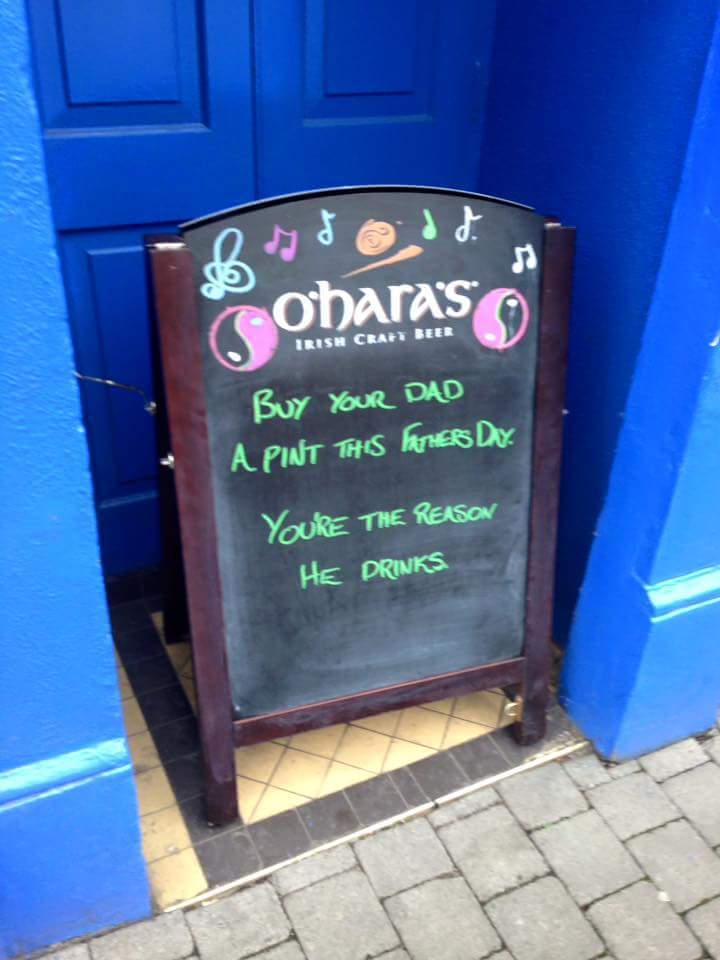 O'HARA'S
IRISH CRAFT BEER
BUY YOUR DAD
A PINT THIS FATHERS DAY.
YOU'RE THE REASON
HE DRINKS.